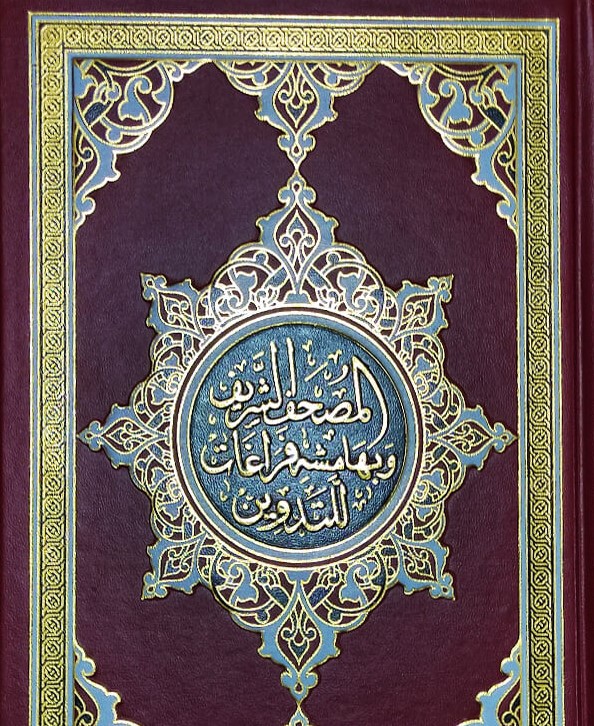 المصحف الشريف
وبهامشه فراغات
للتدوين